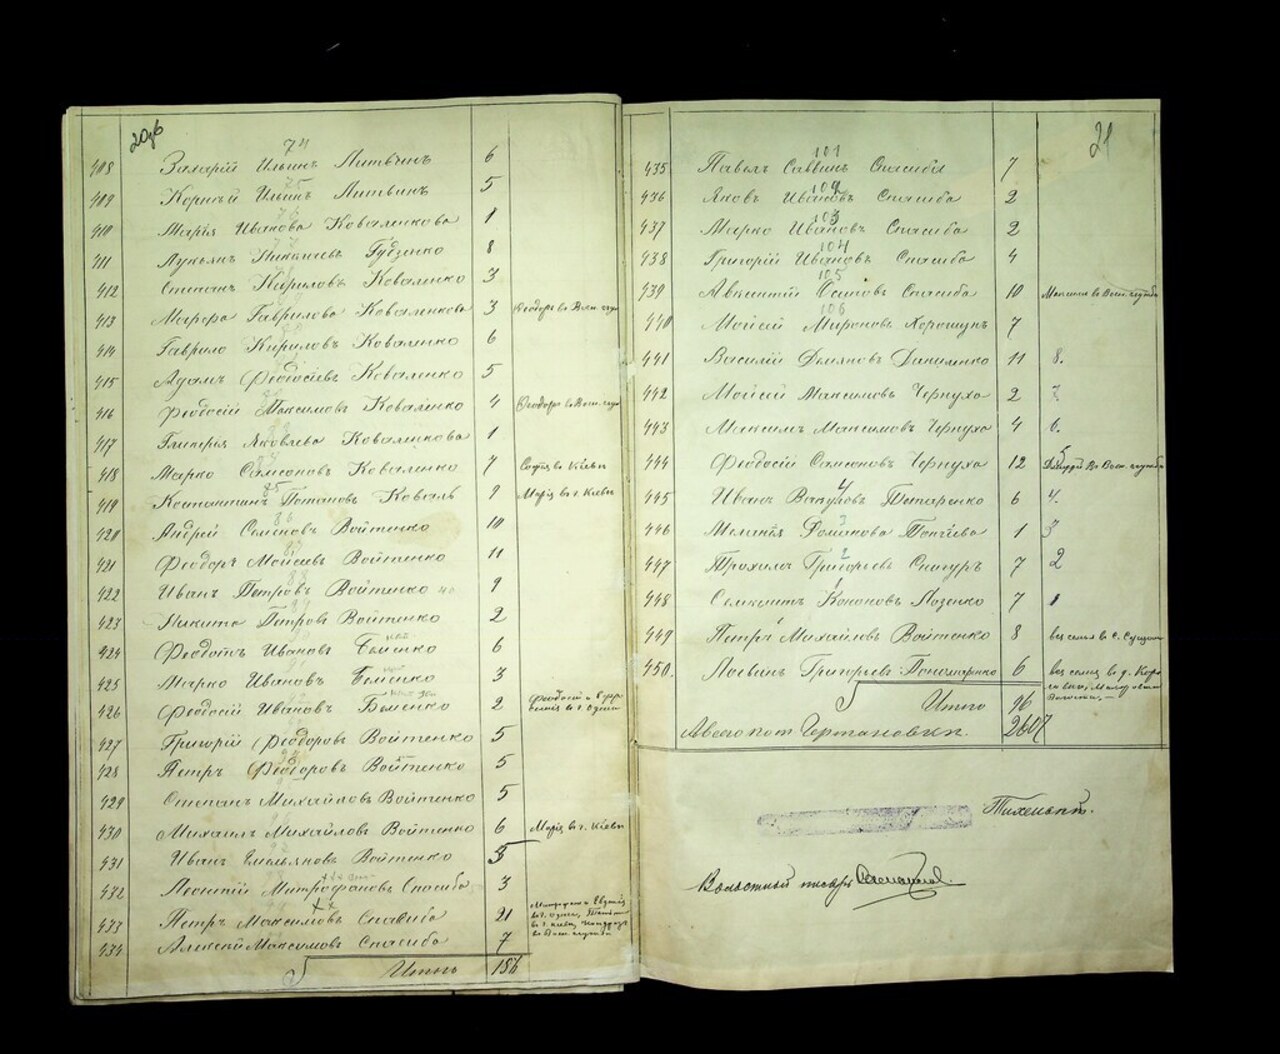 20об
74
408 Захарій Ильинъ Литвинъ 6
75
409 Корній Ильинъ Литвинъ 5
410 Марія Иванова Коваленкова 1
411 Лукьянъ Гудзенко 8
412 Степанъ Кириловъ Коваленко 3
413 Марфа Гаврилова Коваленкова 3 Феодоръ в Воен. служ
414 Гаврило Кириловъ Коваленко 6
415 Адамъ Феодосіевъ Коваленко 5
416 Феодосій Максимовъ Коваленко 4 Феодоръ в Воен. служ
417 Гликерія Яковлева Коваленкова 1
418 Марко Самсоновъ Коваленко 7 Софія в Кіевѣ
85
419 Константинъ Потаповъ Коваль 9 Марія в г. Кіевѣ
86
420 Андрей Семеновъ Войтенко 10
421 Феодоръ Моисеевъ Войтенко 11
88
422 Иванъ Петровъ Войтенко 9
423 Никита Петровъ Войтенко 2
424 Феодотъ Ивановъ Беменко 6
425 Марко Ивановъ Беменко 3
426 Феодосій Ивановъ Беменко 2 Феодосій и в г. Одессѣ
427 Григорій Феодоровъ Войтенко 5
428 Петръ Феодоровъ Войтенко 5
429 Степанъ Михайловъ Войтенко 5
430 Михаилъ Михайловъ Войтенко 6 Марія в г. Кіевѣ
431 Иванъ Емельяновъ Войтенко 5
432 Леонтій Митрофановъ Спасиба 3
433 Петръ Максимовъ Спасиба 21 Митрофанъ и Евгенія в г. Одессѣ, в г. Кіевѣ, Кондратъ в Воен. службѣ
434 Алексѣй Максимовъ Спасиба 7
Итого 186
21
101
435 Павелъ Саввинъ Спасиба 7
102
436 Яковъ Ивановъ Спасиба 2
103
437 Марко Ивановъ Спасиба 2
104
438 Григорій Ивановъ Спасиба 4
105
439 Авксентій Осиповъ Спасиба 10 в Воен. службѣ
106
440 Мойсей Мироновъ Хорошунъ 7
441 Василій Демяновъ Даниленко 11 8.
442 Мойсей Максимовъ Чернуха 2 7
443 Максимъ Максимовъ Чернуха 4 6.
5
444 Феодосій Самсоновъ Чернуха 12 Андрей в Воен. службѣ
4
445 Иванъ Вакуловъ Потапенко 6 4.
3
446 Меланія Романова 1 3
2
447 Трохимъ Григорьевъ Снигуръ 7 2
1
448 Кононовъ Лозенко 7 1
449 Петръ Михайловъ Войтенко 8 вся семья в с.
450. Логвинъ Григорьевъ Пономаренко 6 вся семья в д.
Итого 96
А всего по т. Чертановки. 2607
Волостной писарь